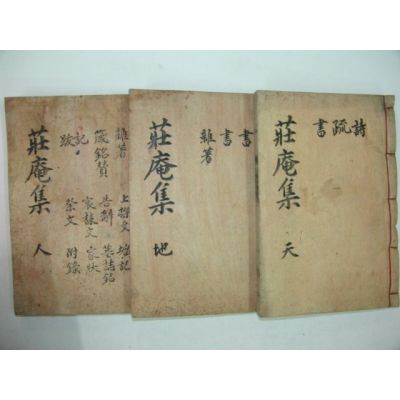 詩
疏
書
莊庵集 天
書
書
雜著
莊庵集 地
雜著
箴銘贊
記
跋
上樑文
告辭
哀誄文
祭文
墓誌銘
家狀
附錄
莊庵集 人